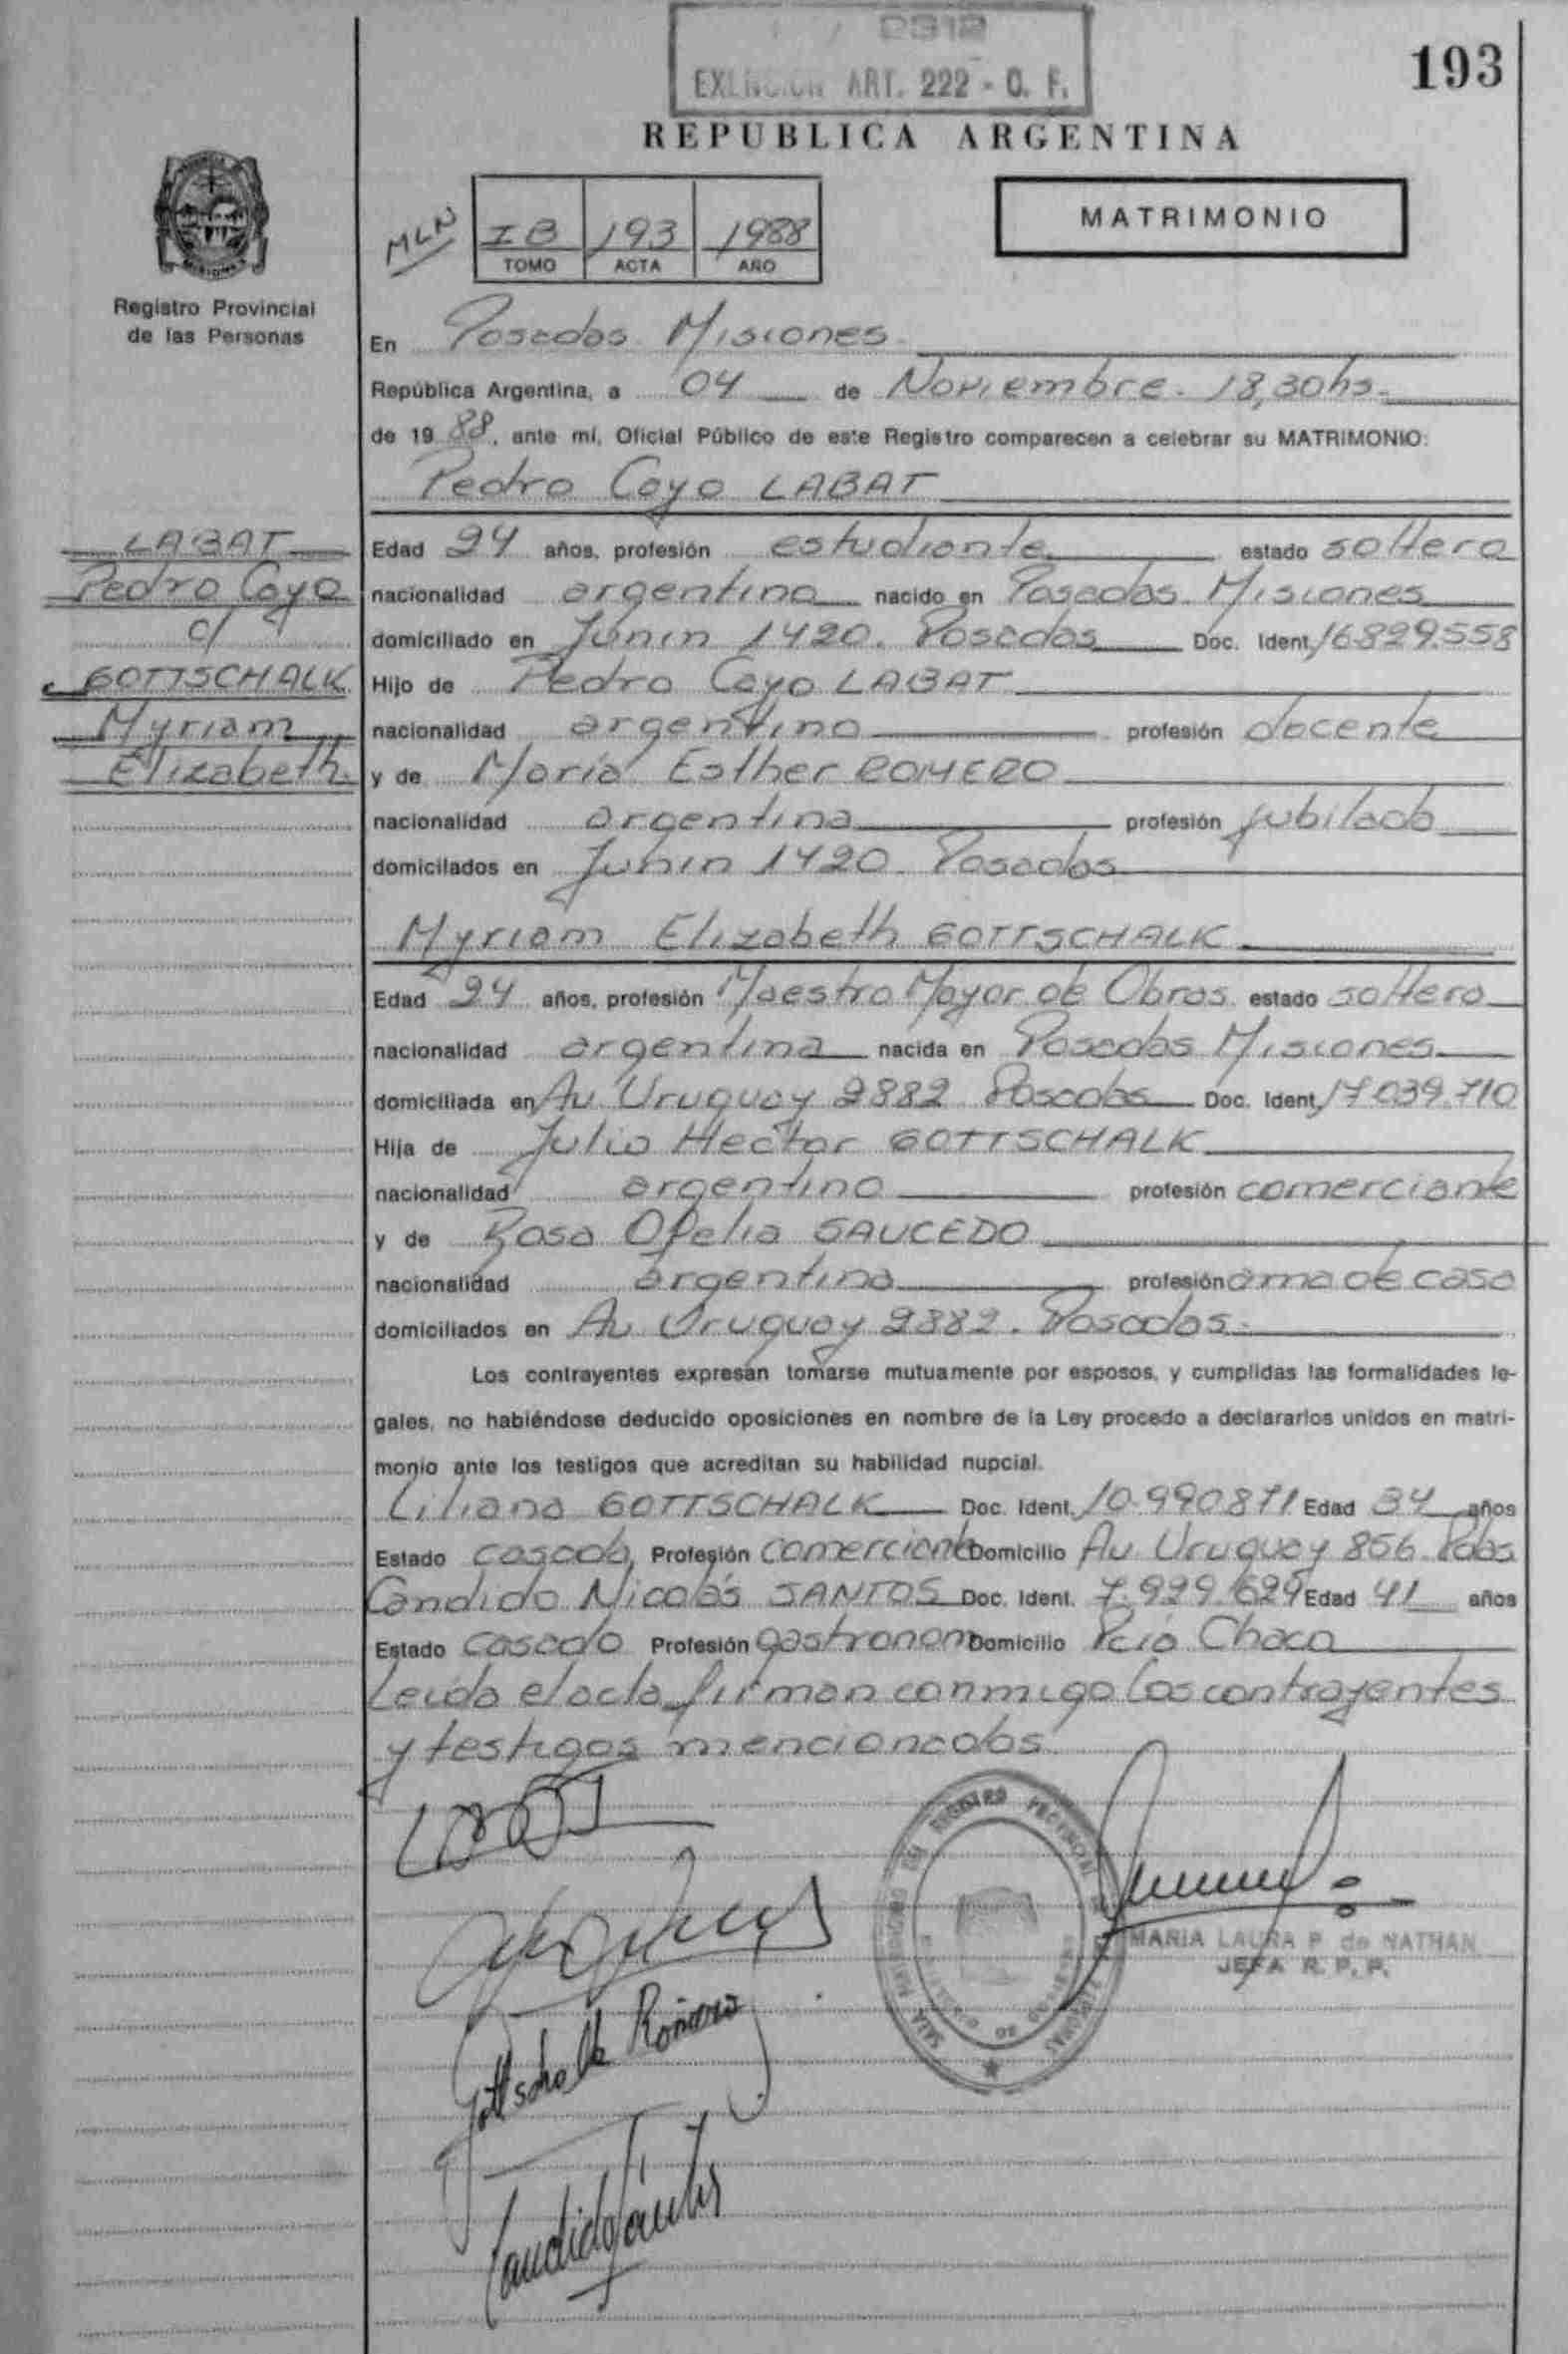 0312
EXENCION ART. 222 - O. F.
193
REPUBLICA ARGENTINA
MATRIMONIO
MLN
IB 193 1988
TOMO ACTA AÑO
Registro Provincial
de las Personas
En Posadas Misiones
República Argentina, a 04 de Noviembre. 18,30hs.
de 19 88, ante mí, Oficial Público de este Registro comparecen a celebrar su MATRIMONIO:
Pedro Cayo LABAT
LABAT
Pedro Cayo
c/
GOTTSCHALK
Myriam
Elizabeth
Edad 24 años, profesión estudiante estado soltero
nacionalidad argentina nacido en Posadas Misiones
domiciliado en Junin 1420. Posadas Doc. Ident. 16.829.558
Hijo de Pedro Cayo LABAT
nacionalidad argentino profesión docente
y de María Esther ROMERO
nacionalidad argentina profesión jubilada
domicilados en Junin 1420 Posadas
Myriam Elizabeth GOTTSCHALK
Edad 24 años, profesión Maestro Mayor de Obras estado soltera
nacionalidad argentina nacida en Posadas Misiones
domiciliada en Av Uruguay 2882 Posadas Doc. Ident. 17.039.710
Hija de Julio Hector GOTTSCHALK
nacionalidad argentino profesión comerciante
y de Rosa Ofelia SAUCEDO
nacionalidad argentina profesión ama de casa
domiciliados en Av Uruguay 2882. Posadas.
Los contrayentes expresan tomarse mutuamente por esposos, y cumplidas las formalidades le-
gales, no habiéndose deducido oposiciones en nombre de la Ley procedo a declararlos unidos en matri-
monio ante los testigos que acreditan su habilidad nupcial.
Liliana GOTTSCHALK Doc. Ident. 10.990871 Edad 34 años
Estado casada Profesión comerciante Domicilio Av Uruguay 856 Pdas
Candido Nicolás SANTOS Doc. Ident. 7.929.629 Edad 41 años
Estado casado Profesión gastronom Domicilio Pcia Chaco
Leida el acta firman conmigo los contrayentes
y testigos mencionados
MARIA LAURA P. de NATHAN
JEFA R. P. P.
Gottschalk Romero
Candido Santos